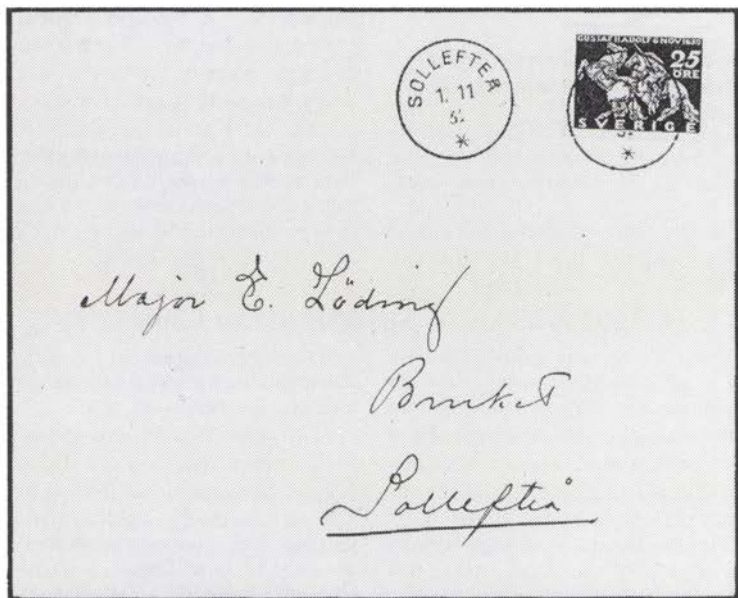 SOLLEFTEÅ
1. 11
GUSTAF II ADOLF 6 NOV 1632
25
ÖRE
SVERIGE
Major E. Löding
Bruket
Sollefteå